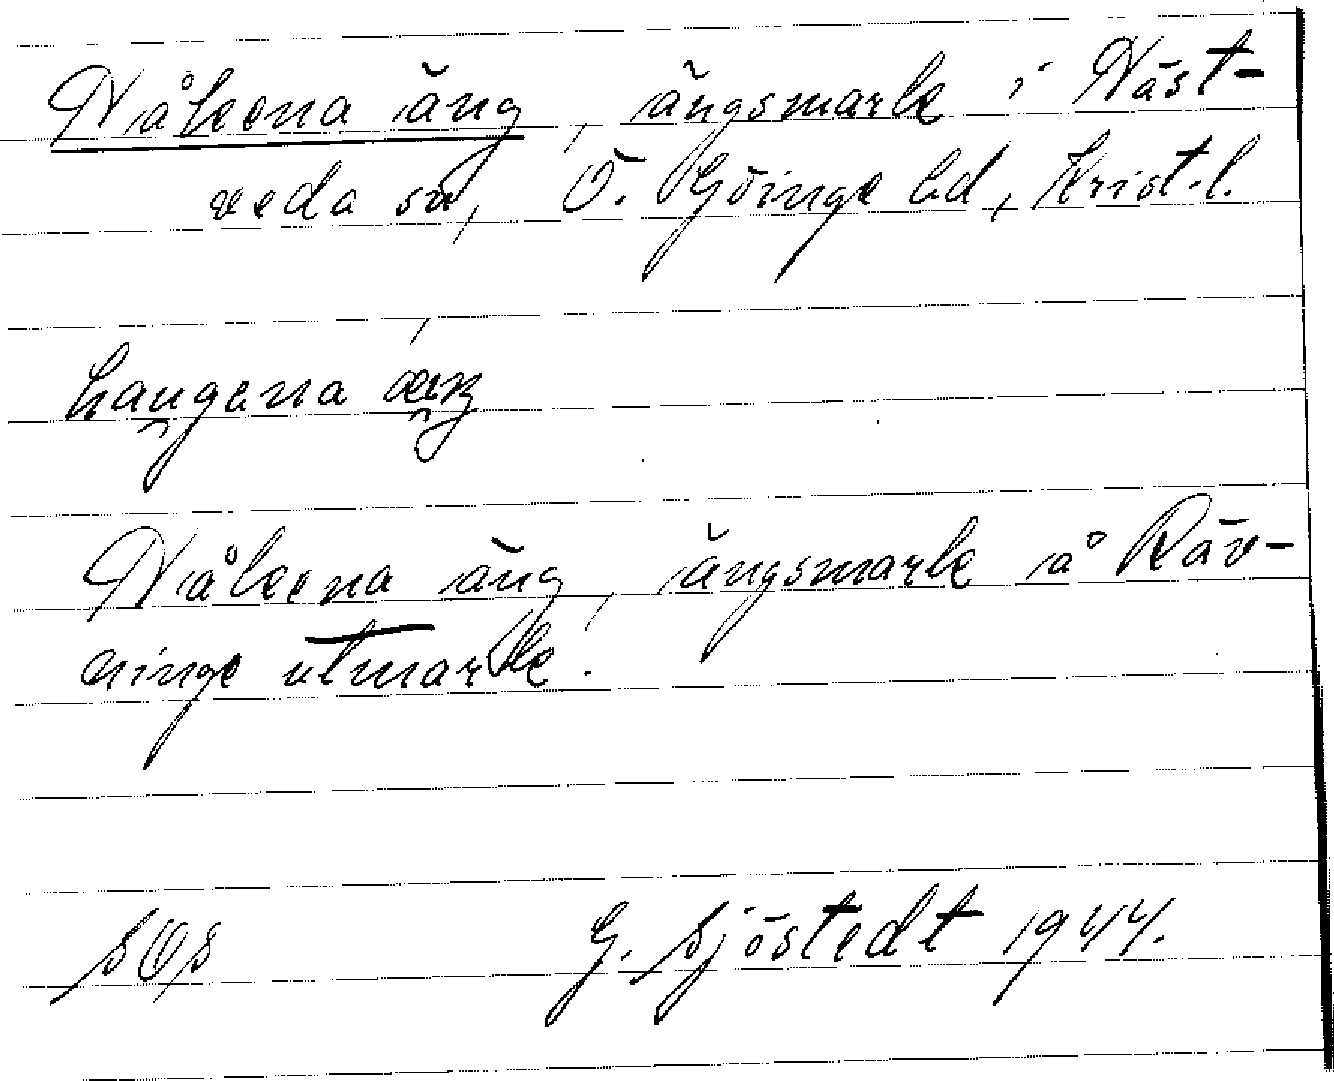 Nåkena äng, ängsmark i Näst-
veda sn, Ö. Göinge hd, Krist. l.
Nåkena äng, ängsmark å Räv-
ninge utmark.
SOS G. Sjöstedt 1944.